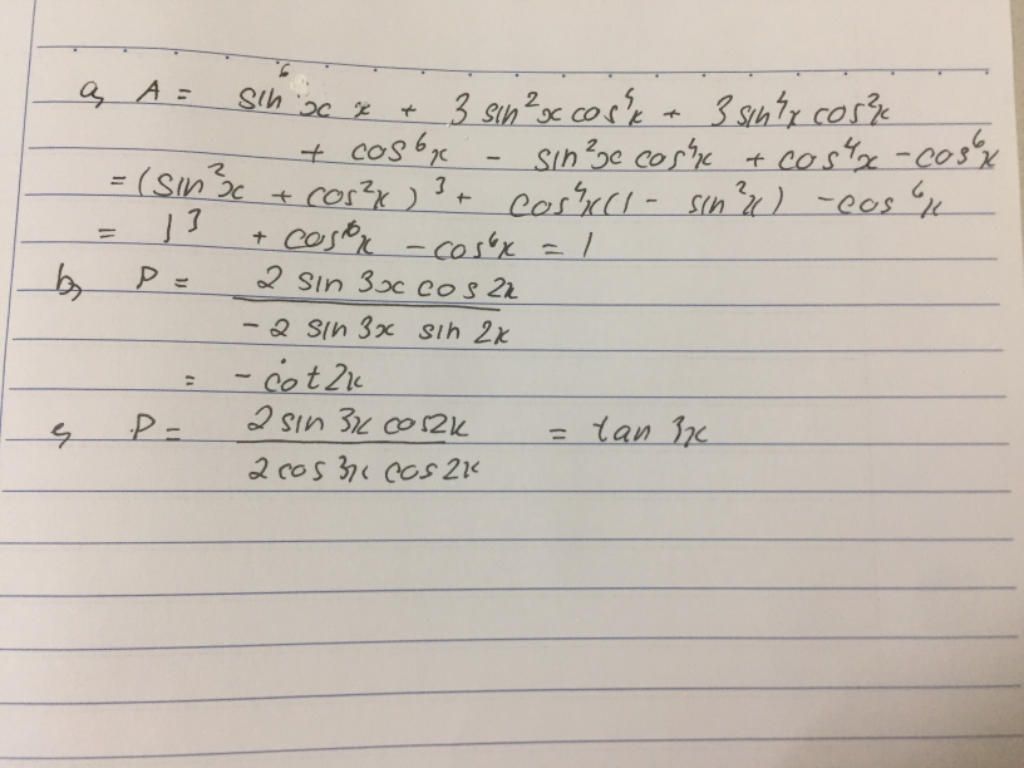 a, A = sin⁶x x + 3 sin²x cos⁴x + 3 sin⁴x cos²x
+ cos⁶x - sin²x cos⁴x + cos⁴x - cos⁶x
= (sin²x + cos²x)³ + cos⁴x(1 - sin²x) - cos⁶x
= 1³ + cos⁶x - cos⁶x = 1
b, P = 2 sin 3x cos 2x
- 2 sin 3x sin 2x
= - cot 2x
c, P = 2 sin 3x cos 2x = tan 3x
2 cos 3x cos 2x